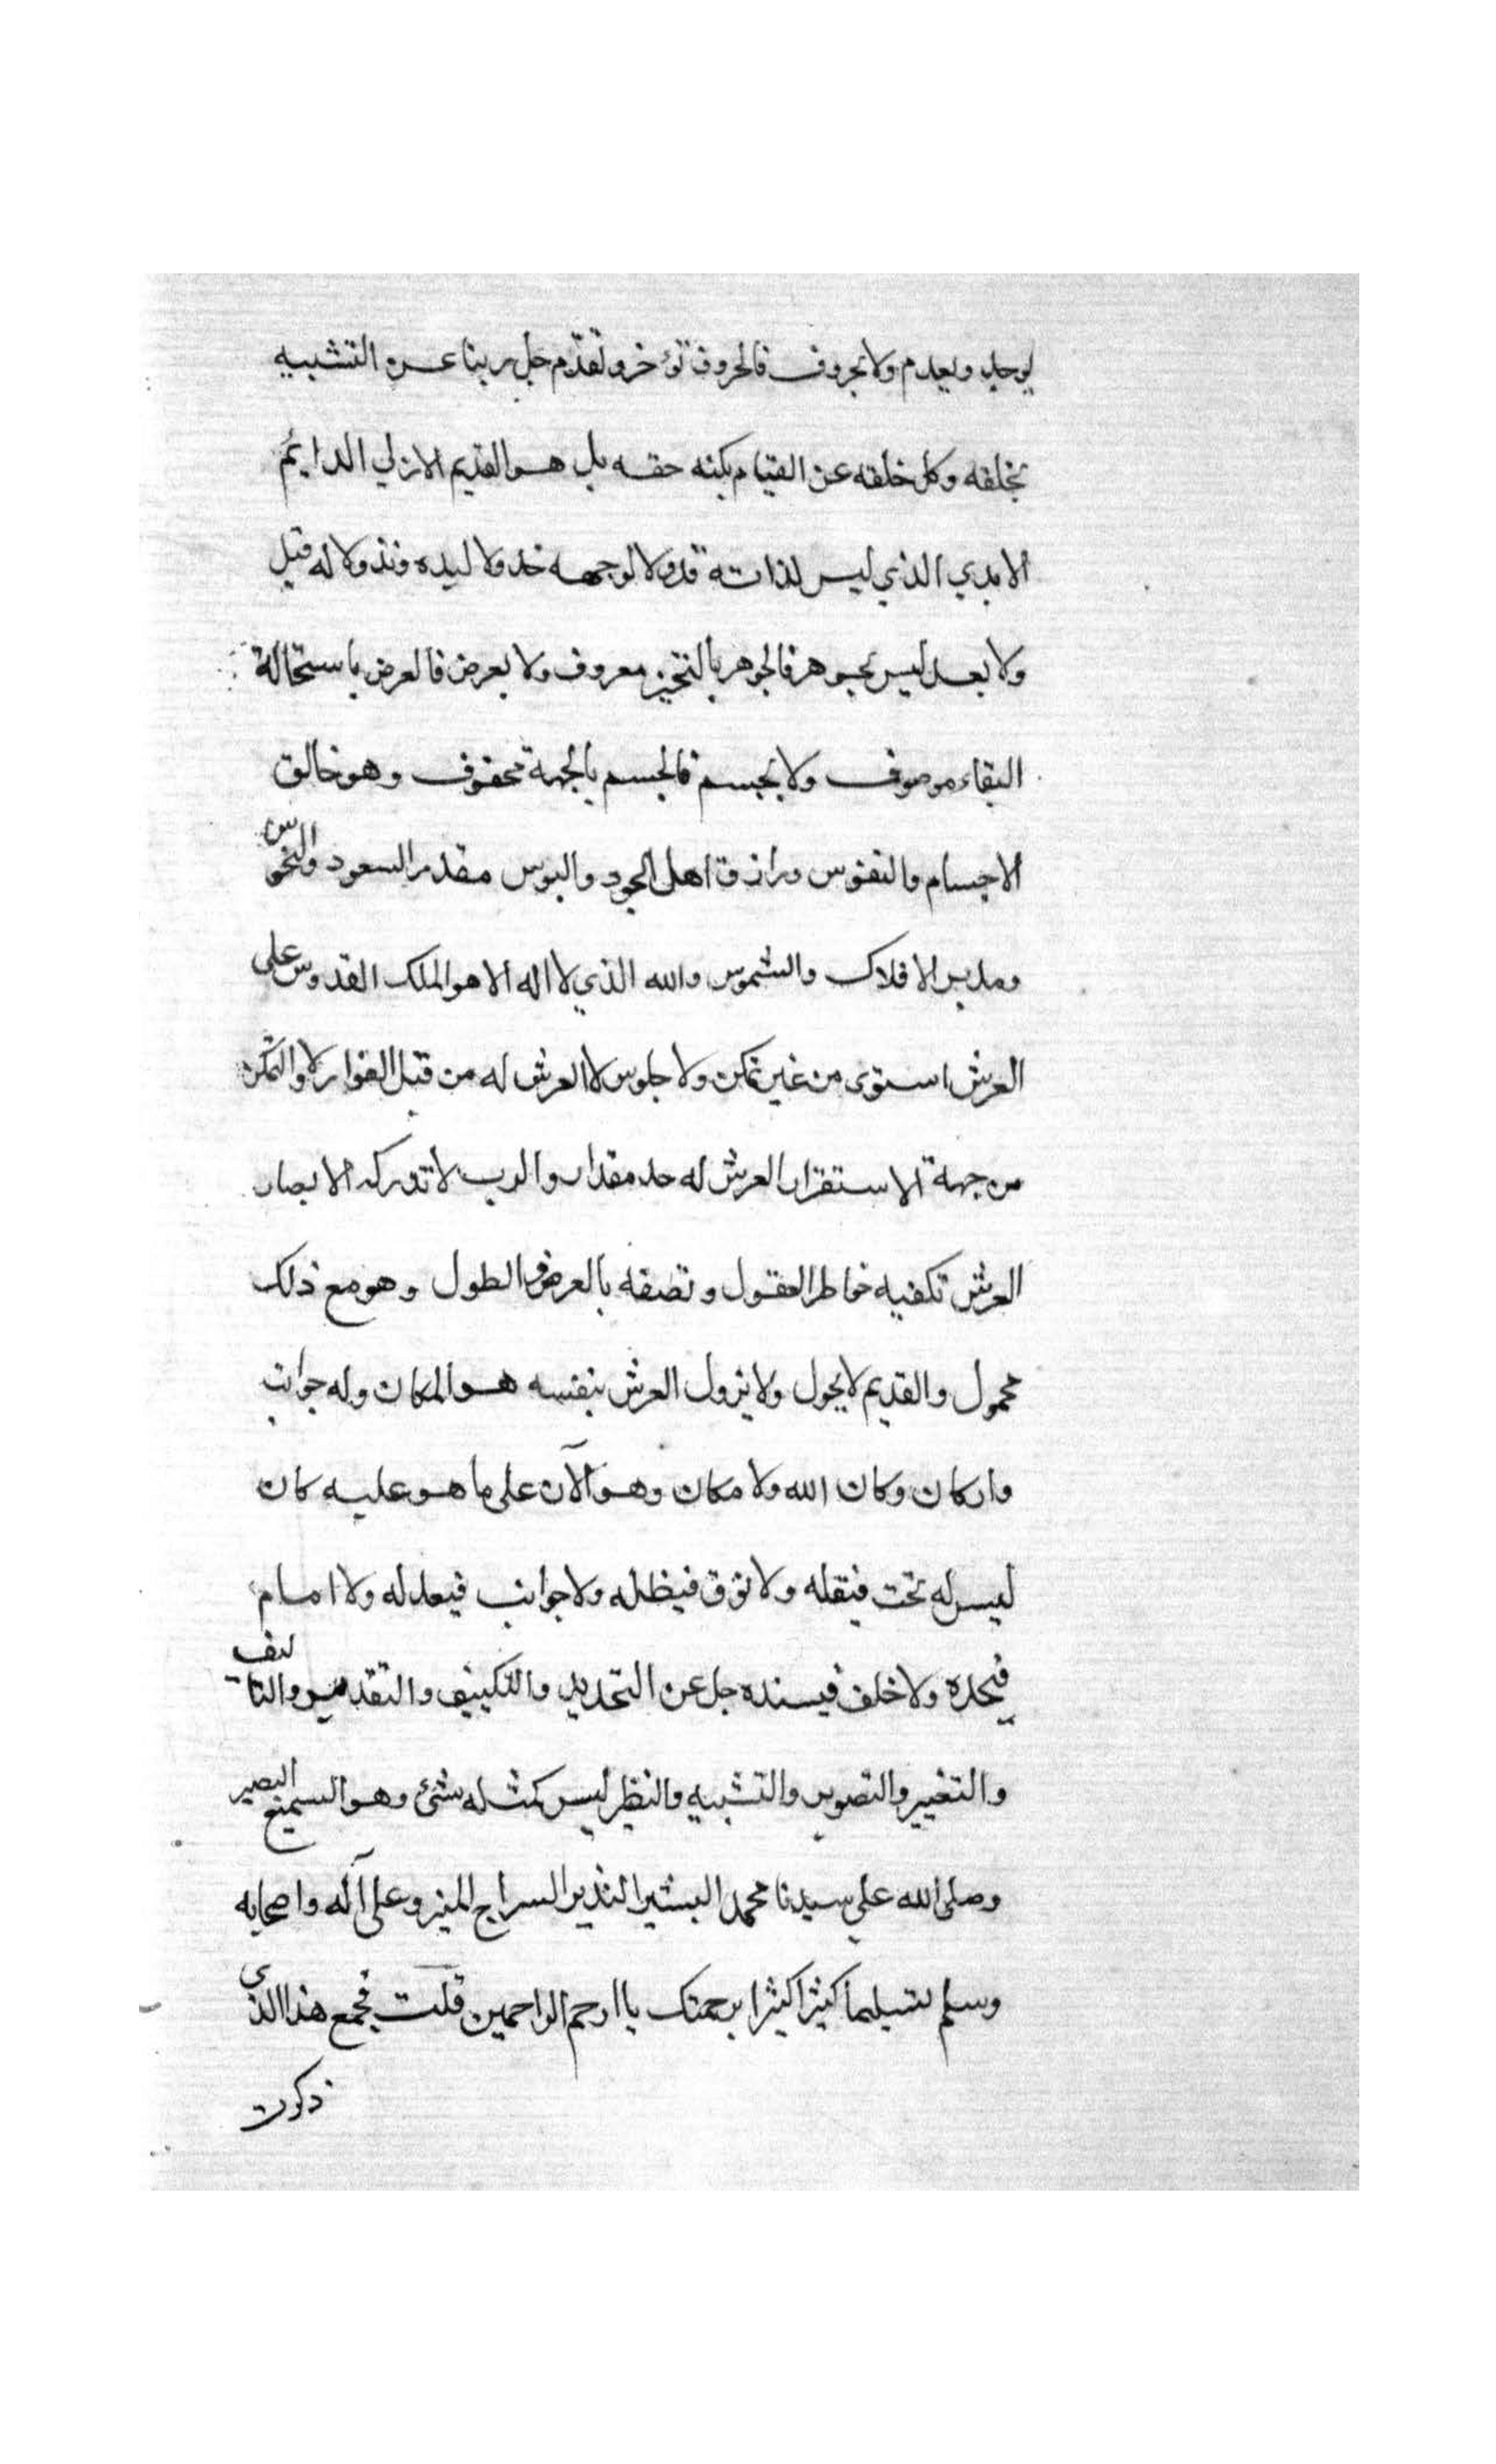 يوجد ويعدم ولا بحروف فالحروف تؤخر وتقدم جل ربنا عن التشبيه
بخلقه وكل خلقه عن القيام بكنه حقه بل هو القديم الازلي الدايم
الابدي الذي ليس لذاته قد ولا لوجهه خد ولا ليده زند ولا له قبل
ولا بعد ليس بجوهر فالجوهر بالتحيز معروف ولا بعرض فالعرض باستحالة
البقاء موصوف ولا بجسم فالجسم بالجهة محفوف وهو خالق
الاجسام والنفوس ورازق اهل الجود والبوس مقدر السعود والنحوس
ومدبر الافلاك والشموس والله الذي لا اله الا هو الملك القدوس على
العرش استوى من غير تمكن ولا جلوس لا العرش له من قبل القرار ولا التمكن
من جهة الاستقرار العرش له حد مقدار والرب لا تدركه الابصار
العرش تكفيه خواطر العقول وتصفه بالعرض والطول وهو مع ذلك
محمول والقديم لا يحول ولا يزول العرش بنفسه هو المكان وله جوانب
واركان وكان الله ولا مكان وهو الآن على ما هو عليه كان
ليس له تحت فيقله ولا فوق فيظله ولا جوانب فيعدله ولا امام
فيحده ولا خلف فيسنده جل عن التحديد والتكييف والتقديس والتاليف
والتغيير والتصوير والتشبيه والنظير ليس كمثله شئ وهو السميع البصير
وصلى الله على سيدنا محمد البشير النذير السراج المنير وعلى آله واصحابه
وسلم تسليما كثيرا كثيرا برحمتك يا ارحم الراحمين قلت فجمع هذا الذي
ذكرت